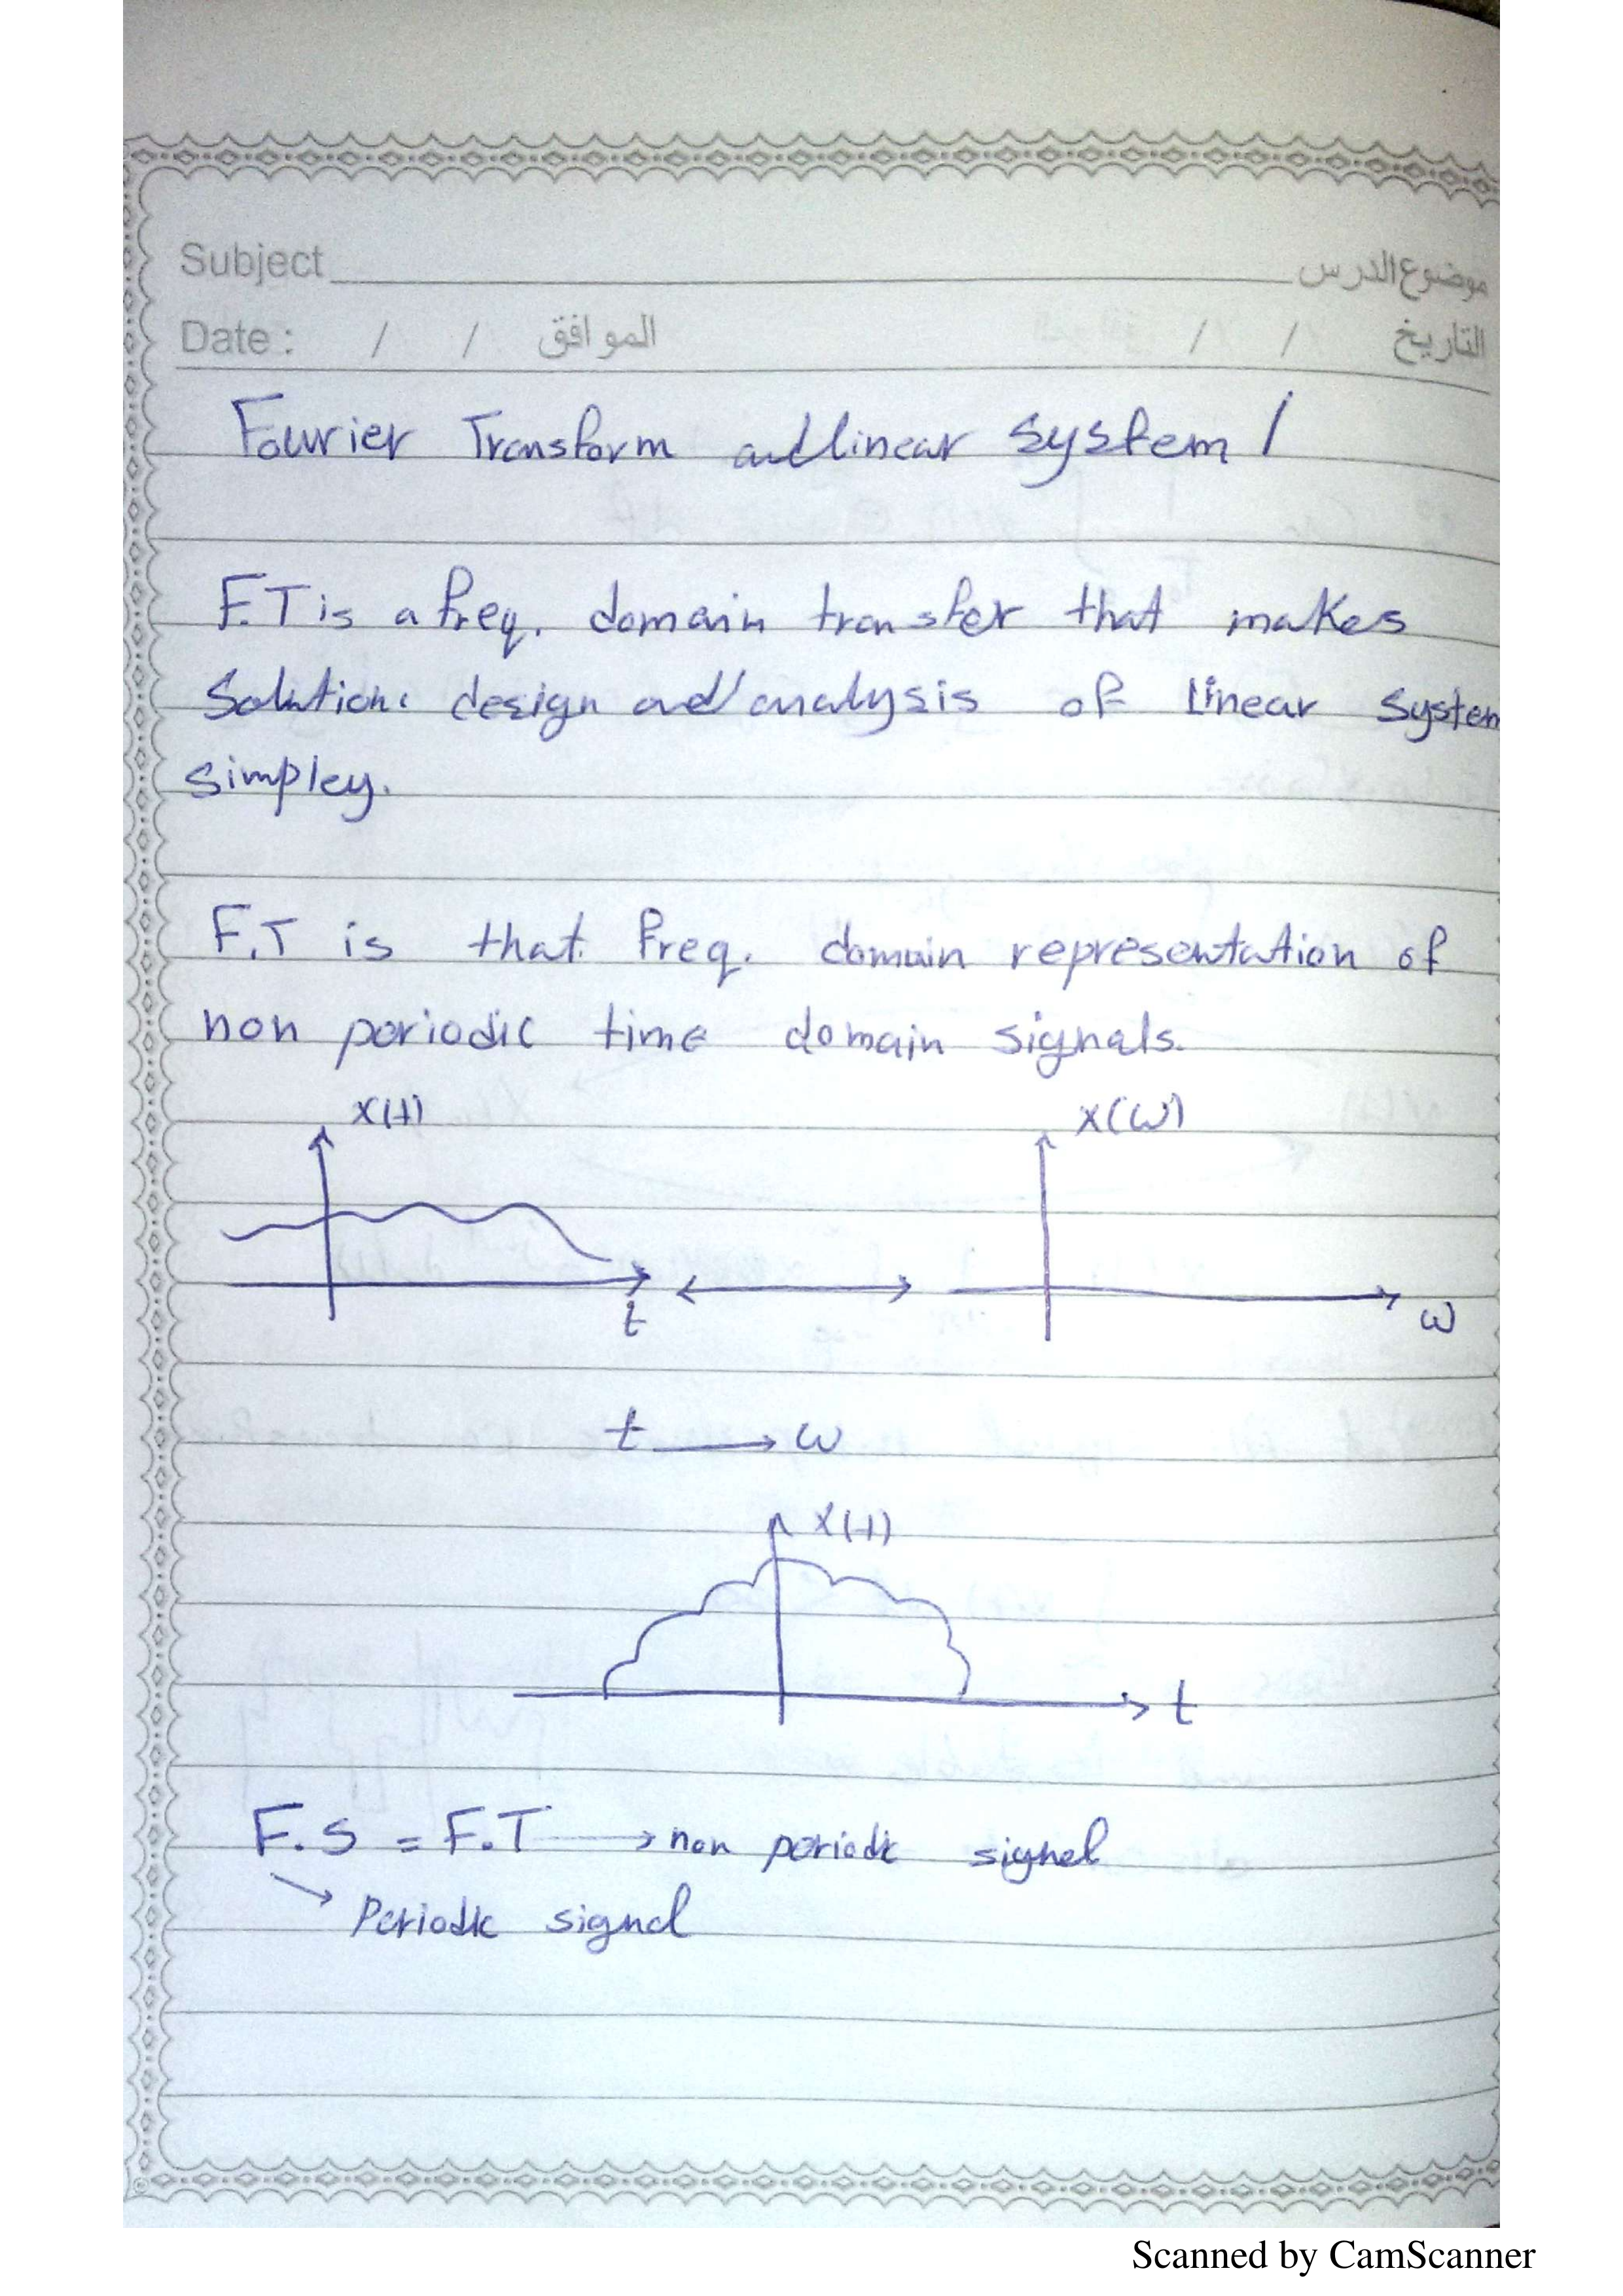 Subject موضوع الدرس
Date : / / الموافق / / التاريخ
Fourier Transform and linear system /
F.T is a freq. domain transfer that makes
Solution: design and analysis of Linear System
simpley.
F.T is that freq. domain representation of
non periodic time domain signals.
x(t) x(ω)
t ω
t → ω
x(t)
t
F.S = F.T → non periodic signal
→ Periodic signal
Scanned by CamScanner